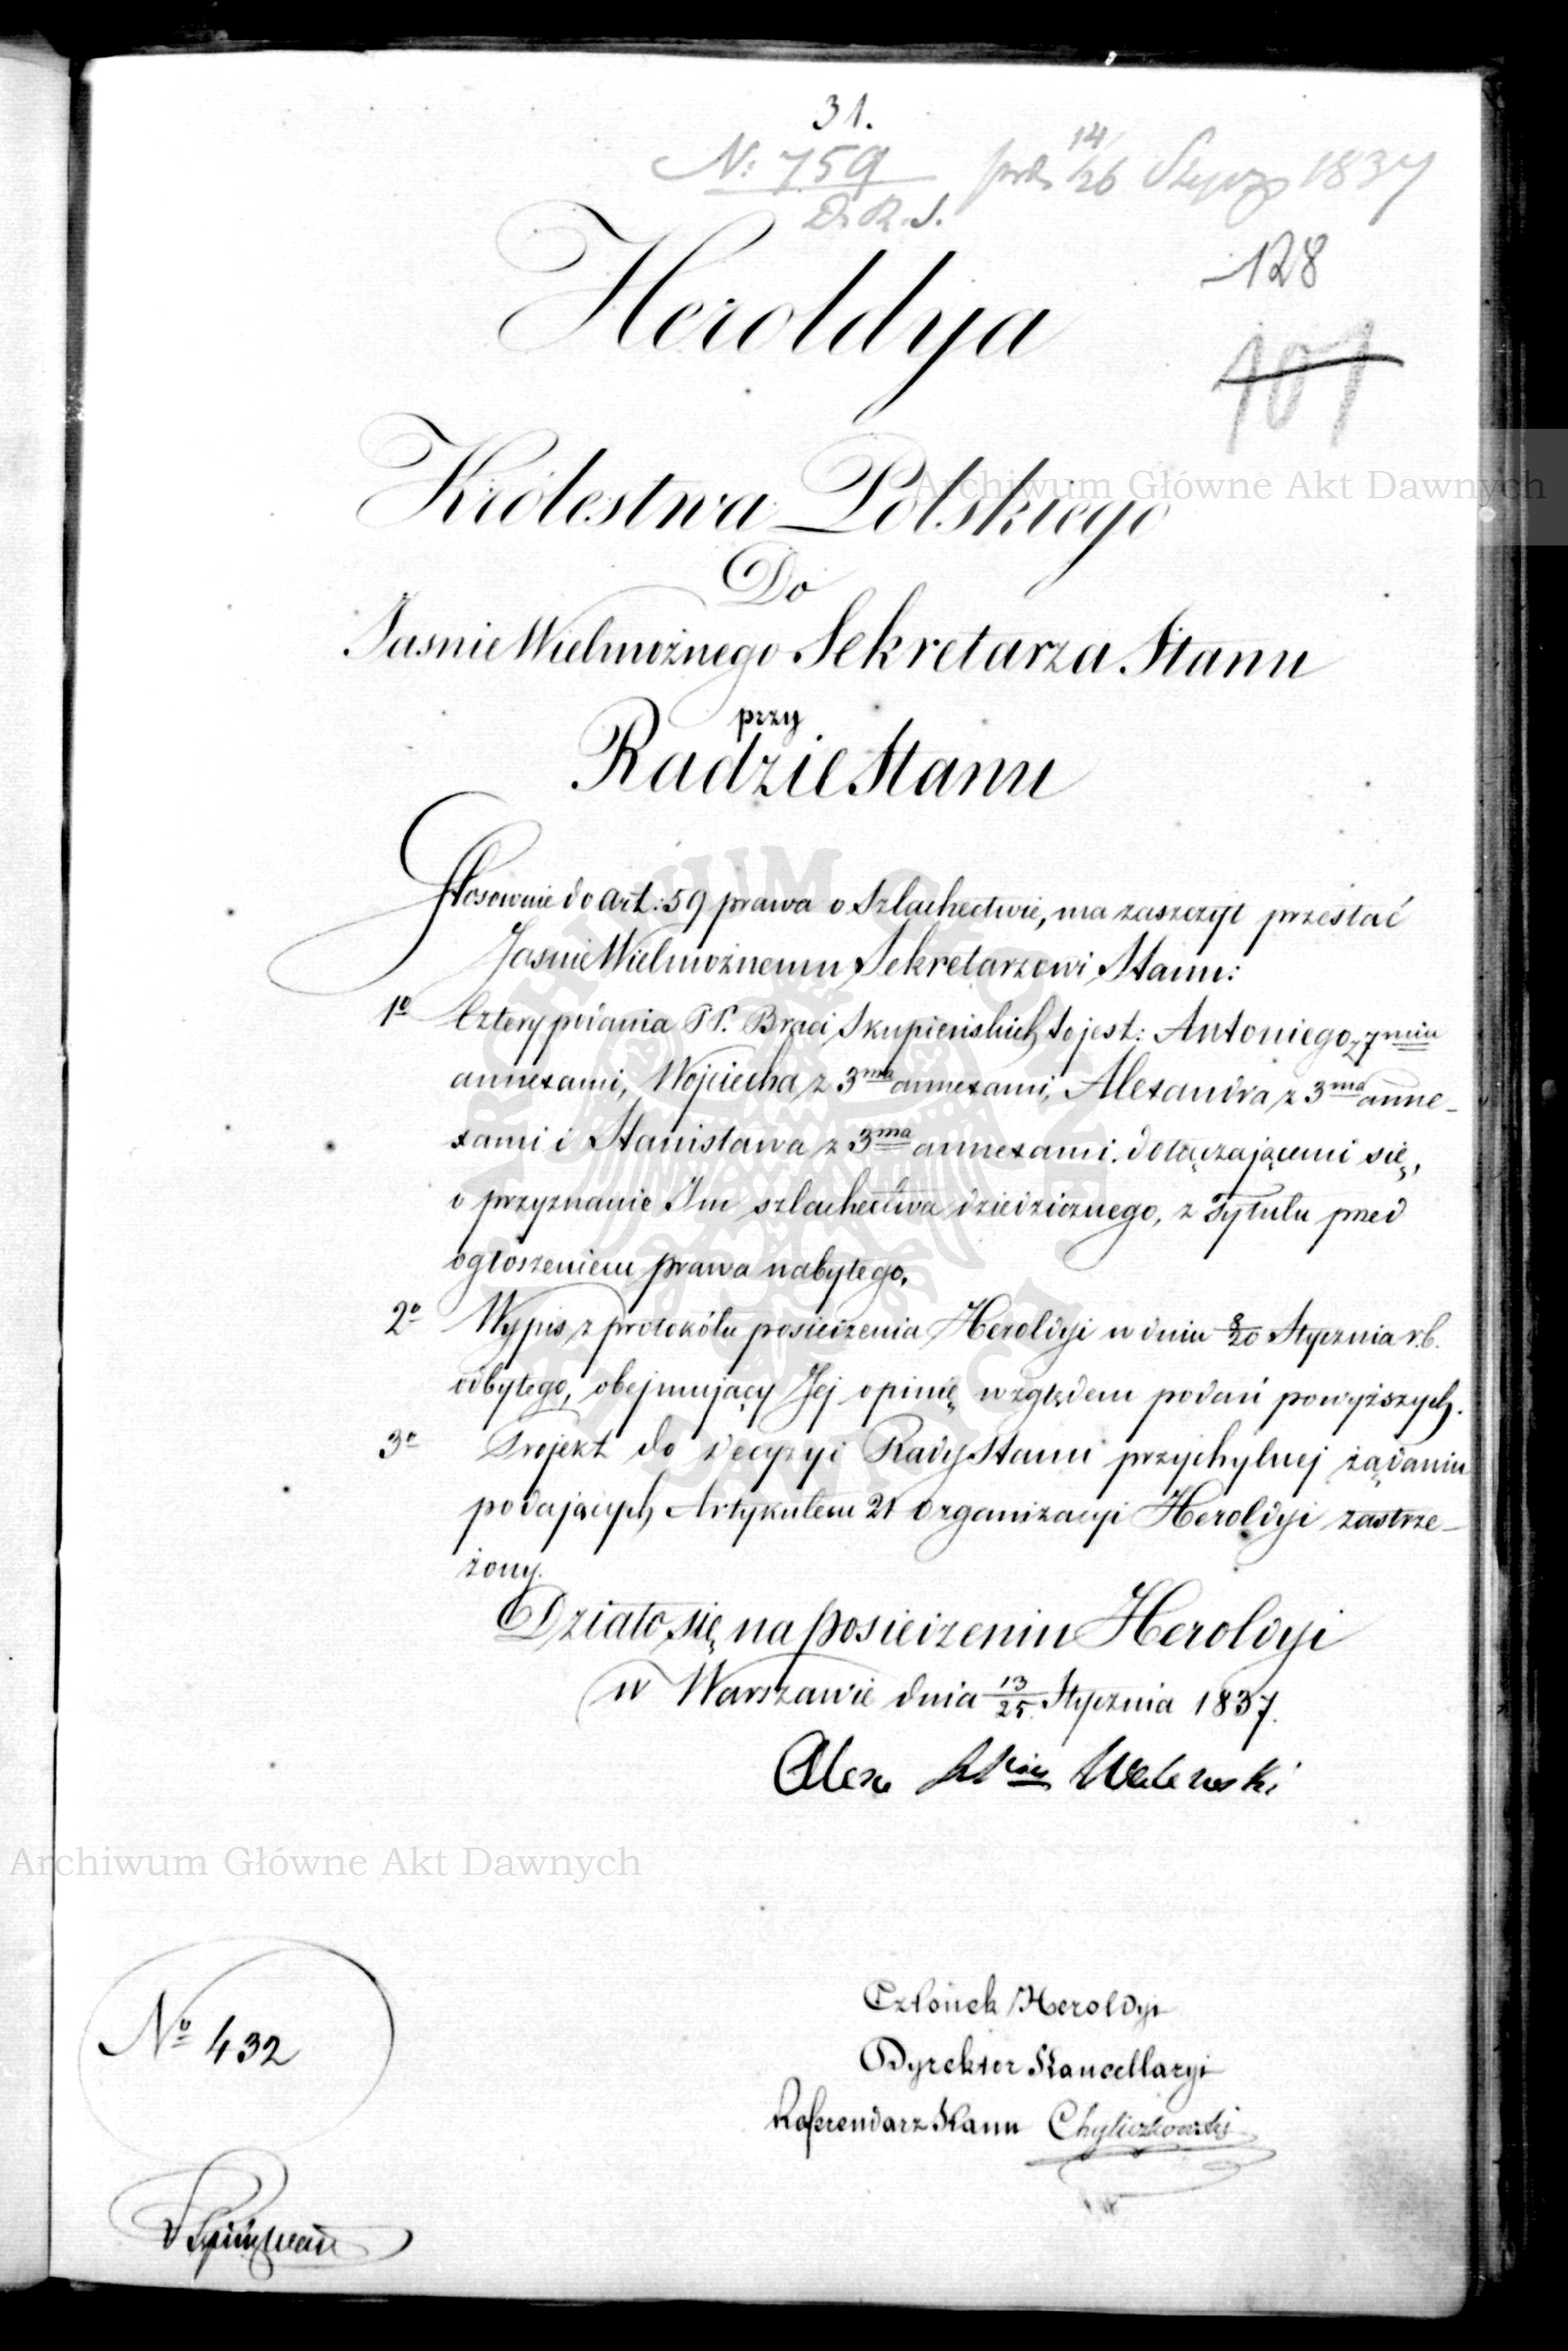 31.
N: 759 prdz 14/26 Stycz 1837
D. R. S.
128
107
Heroldya
Królestwa Polskiego
Archiwum Główne Akt Dawnych
Do
Jasnie Wielmożnego Sekretarza Stanu
przy
Radzie Stanu
Stosownie do art: 59 prawa o Szlachectwie, ma zaszczyt przesłać
Jasnie Wielmożnemu Sekretarzowi Stanu:
1º Cztery podania PP. Braci Skupieńskich to jest: Antoniego z 7miu
annexami, Wojciecha z 3ma annexami, Alexandra z 3ma anne-
xami i Stanisława z 3ma annexami, dołączającemi się,
o przyznanie Im szlachectwa dziedzicznego, z Tytułu przed
ogłoszeniem prawa nabytego.
2º Wypis z protokółu posiedzenia Heroldyi w dniu 8/20 Stycznia r.b.
odbytego, obejmujący Jej opinię względem podań powyższych.
3º Projekt do decyzyi Rady Stanu przychylnej żądaniu
podających Artykułem 21 Organizacyi Heroldyi zastrze-
żony.
Działo się na posiedzeniu Heroldyi
w Warszawie dnia 13/25 Stycznia 1837.
Alex Walewski
Archiwum Główne Akt Dawnych
Członek Heroldyi
Nº 432
Dyrektor Kancellaryi
Referendarz Stanu Chyliczkowski